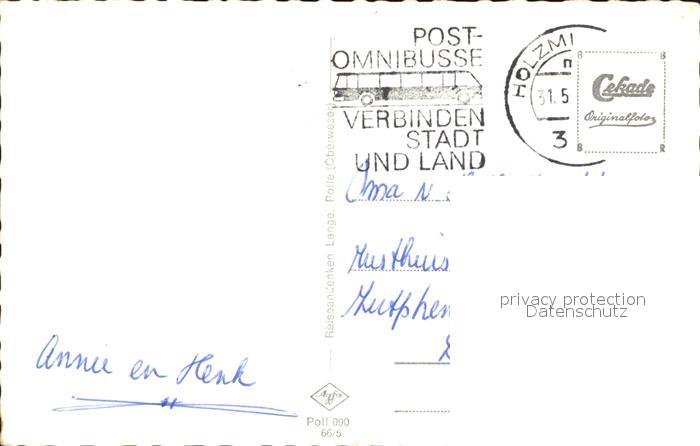 POST-
OMNIBUSSE
VERBINDEN
STADT
UND LAND
HOLZMI
n
31.5
3
B B
Cekade
Originalfoto
B R
Reiseandenken Lange, Polle (Oberweser)
Oma
Zutphen
privacy protection
Datenschutz
Annie en Henk
Agfa
Poll 090
66/5